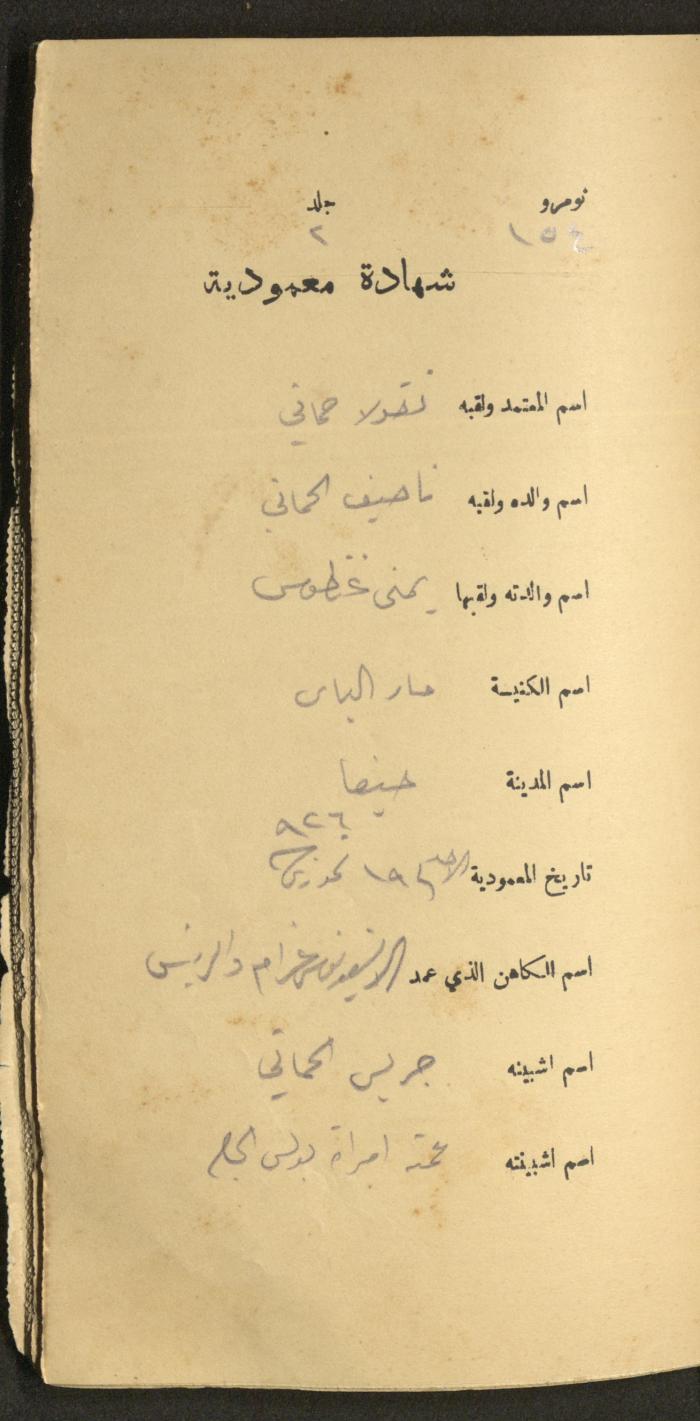 نومرو جلد
١٥٤ ٢
شهادة معمودية
اسم المعتمد ولقبه نقولا حماتي
اسم والده ولقبه ناصيف الحماتي
اسم والدته ولقبها يمنى غطوس
اسم الكنيسة مار الياس
اسم المدينة حيفا
٩٢٦
تاريخ المعمودية الاحد ١٨ تموز
اسم الكاهن الذي عمد والريس
اسم اشبينه جريس الحماتي
اسم اشبينته عمته امرأة بولس